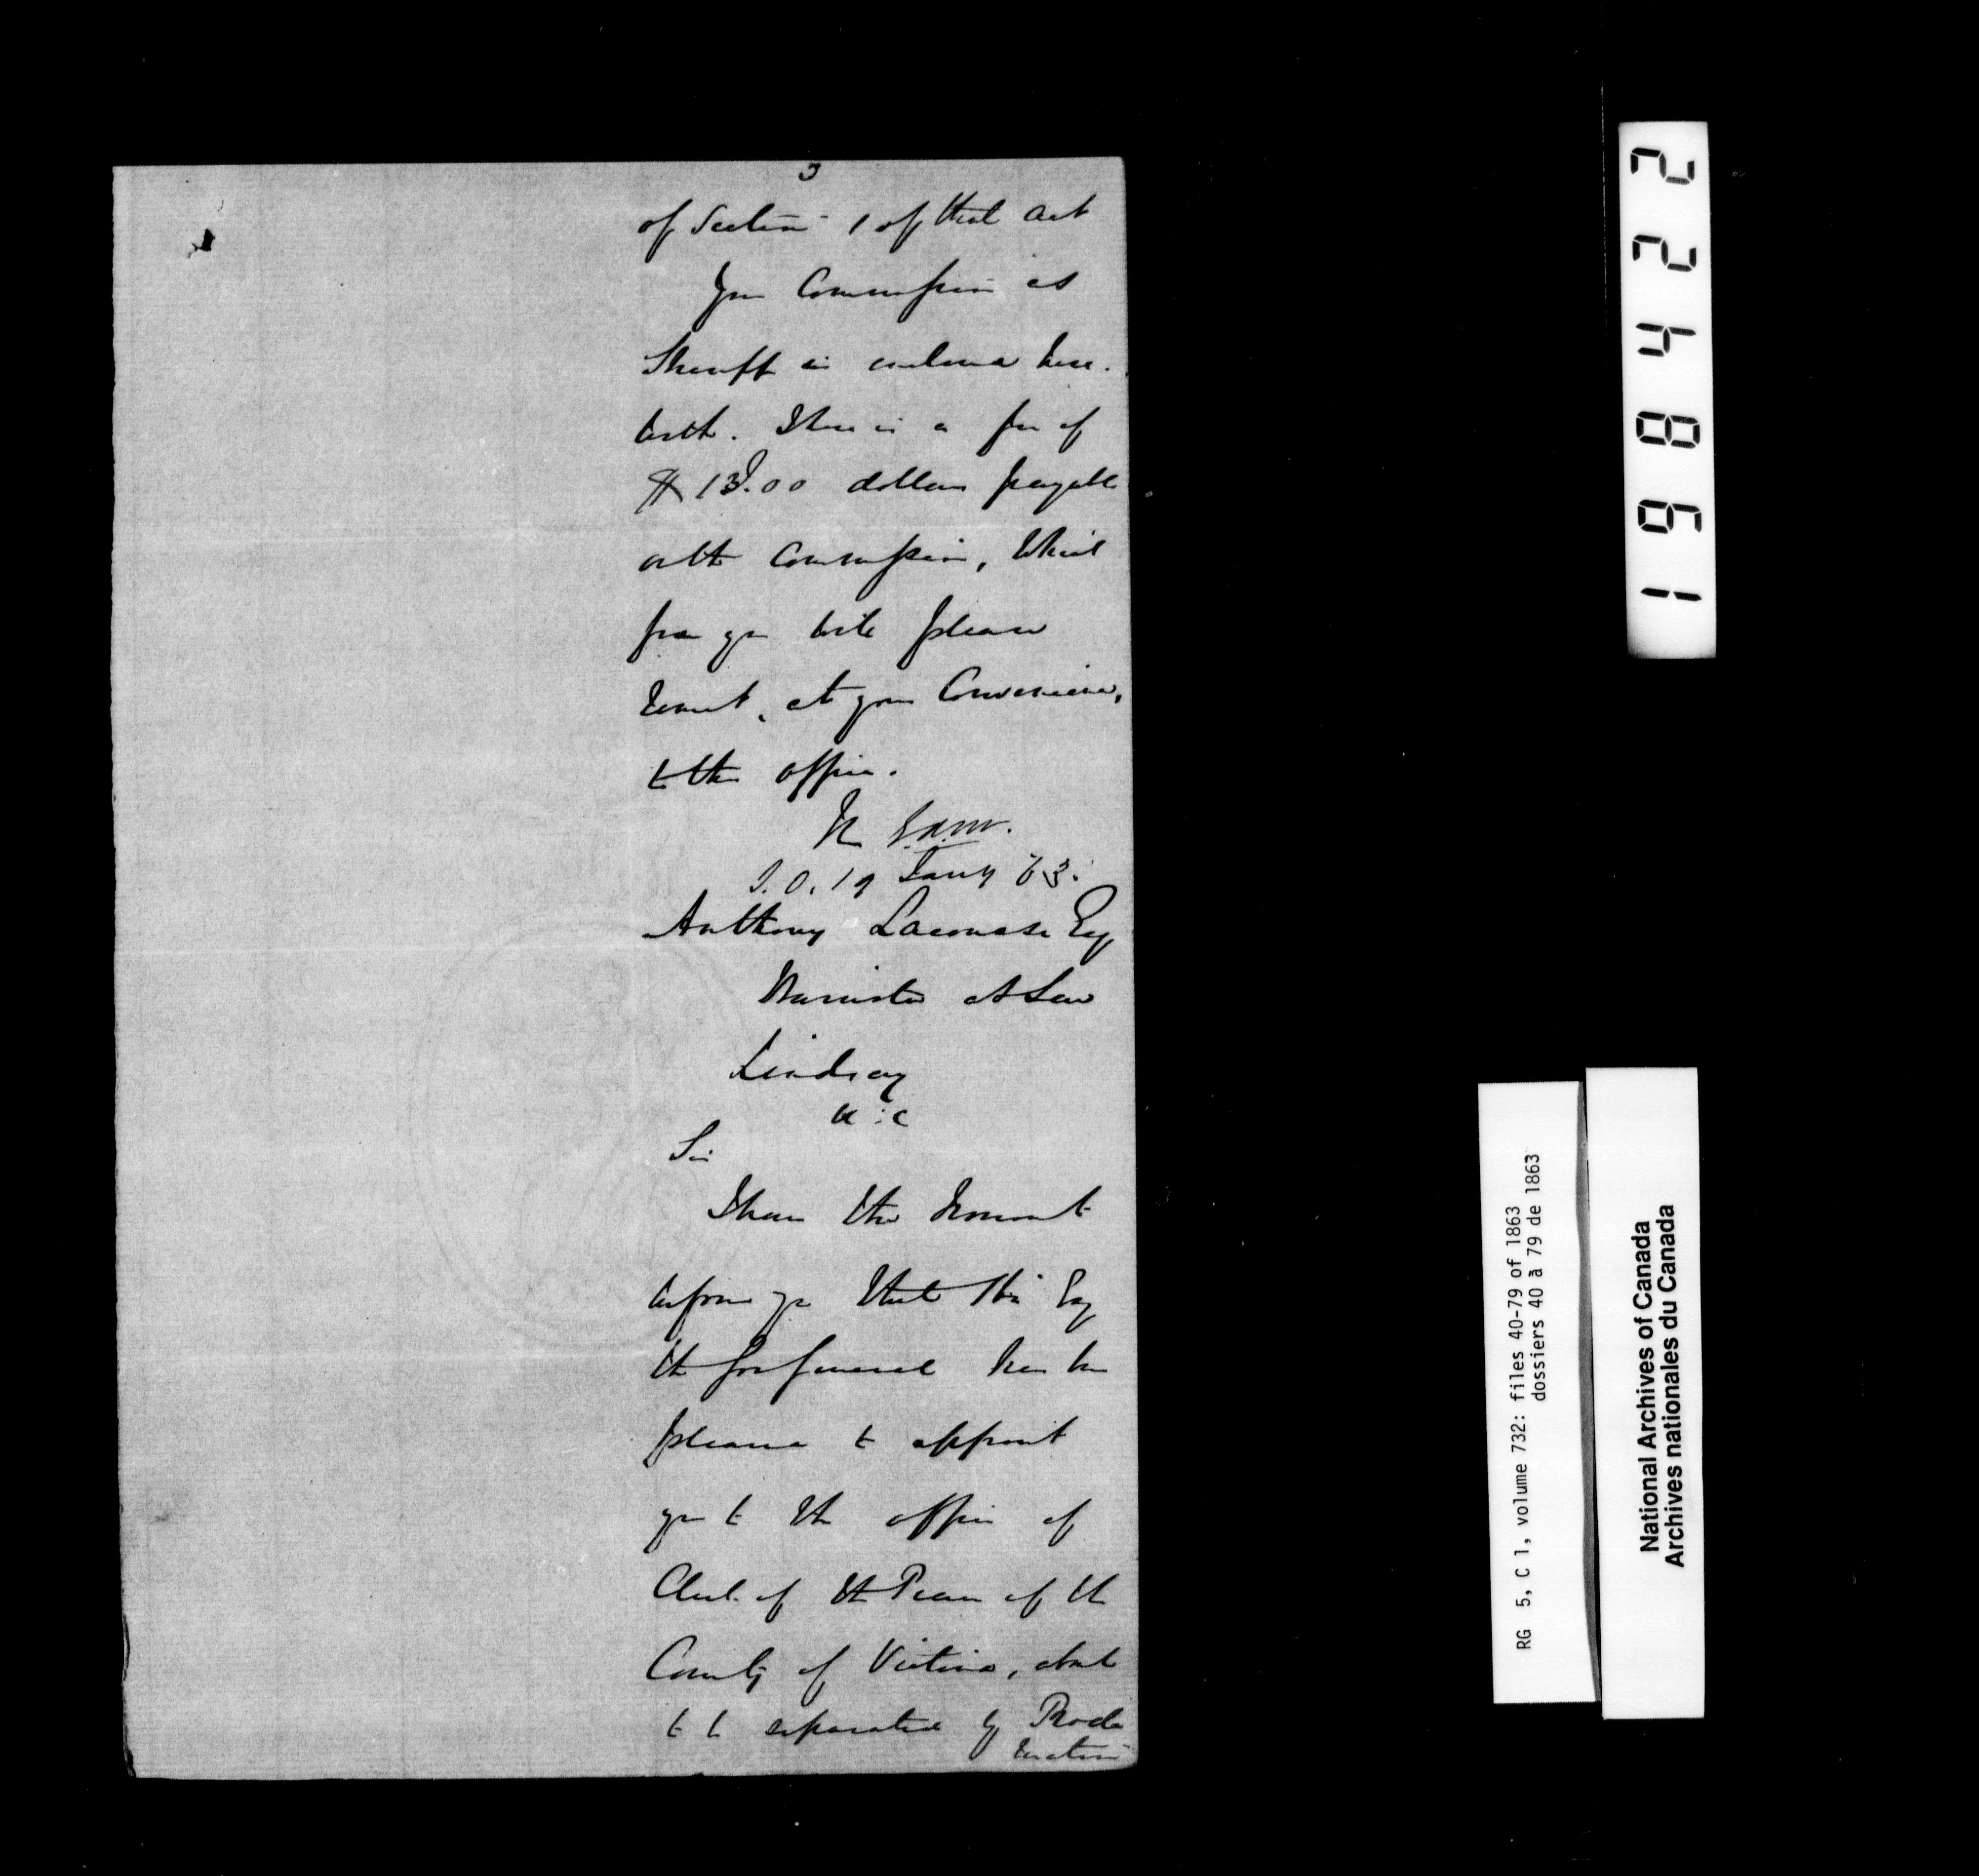 3
of Section 1 of that act
Your Commission as
Sheriff is enclosed here-
with. There is a fee of
$13.00 dollars payable
on the Commission, which
fee you will please
remit, at your Convenience,
to this office.
19 Jany 63.
Anthony Lacourse Esq
Barrister at Law
Lindsay
U:C
Sir
I have the honor to
inform you that His Exy
the Gov General has been
pleased to appoint
you to the office of
Clerk of the Peace of the
County of Victoria, about
to be separated by Procla
mation
1 9 1 6 8 4 2 2
RG 5, C 1, volume 732: files 40-79 of 1863
dossiers 40 à 79 de 1863
National Archives of Canada
Archives nationales du Canada